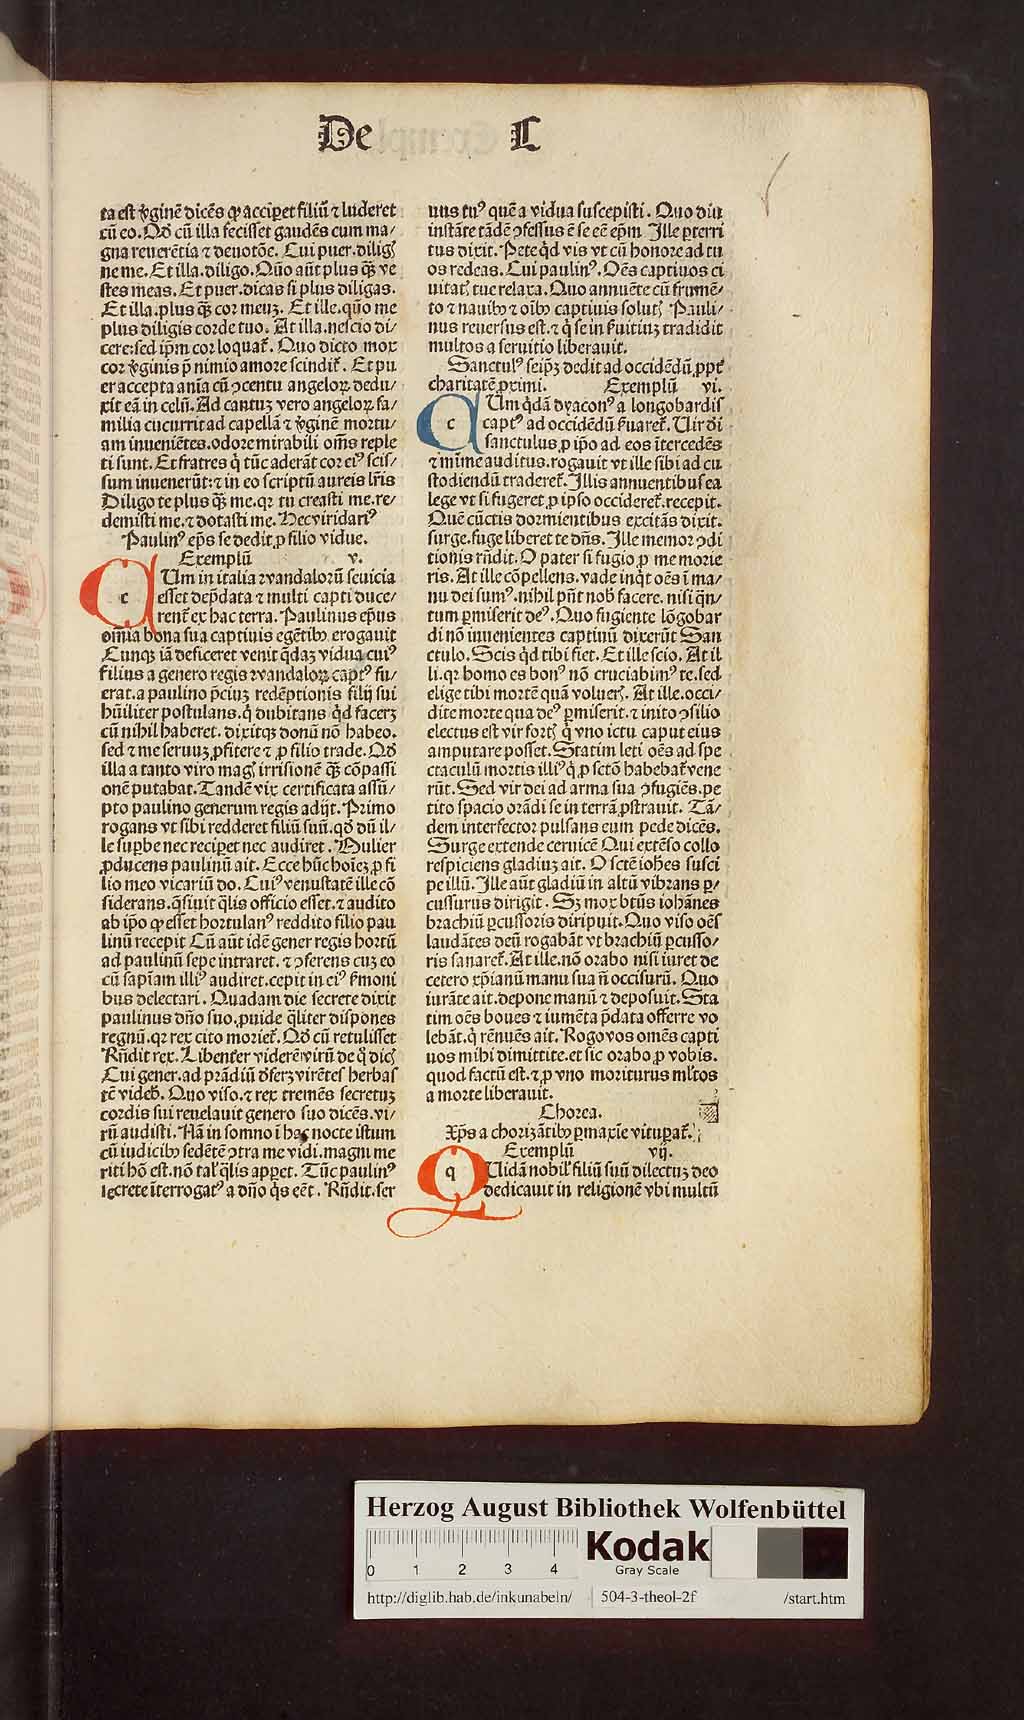 De L
ta est v̾ginē dicēs ꝙ acciꝑet filiū ⁊ luderet
cū eo. Qd̾ cū illa fecisset gaudēs cum ma⸗
gna reuerētia ⁊ deuotōe. Cui puer. diligꝭ
ne me. Et illa. diligo. Qūo aūt plus qꝫ ve
stes meas. Et puer. dicas si plus diligas.
Et illa. plus qꝫ cor meuꝫ. Et ille. qūo me
plus diligis corde tuo. At illa. nescio di⸗
cere: sed ip̄m cor loquat᷑. Quo dicto mox
cor v̾ginis p̄ nimio amore scindit᷑. Et pu
er accepta aīa cū ꝯcentu angeloꝝ dedu⸗
xit eā in celū. Ad cantuꝫ vero angeloꝝ fa⸗
milia cucurrit ad capellā ⁊ v̾ginē mortu⸗
am inueniētes. odore mirabili om̄s reple
ti sunt. Et fratres q̇ tūc aderāt cor eiꝰ scis⸗
sum inuenerūt: ⁊ in eo scriptū aureis lr̄is
Diligo te plus qꝫ me. qꝛ tu creasti me. re⸗
demisti me. ⁊ dotasti me. Hec viridariꝰ
Paulinꝰ ep̄s se dedit ꝓ filio vidue.
Exemplū v.
c Um in italia ꝛvandaloꝛū seuicia
esset dep̄data ⁊ multi capti duce⸗
rent᷑ ex hac terra. Paulinus ep̄us
om̄ia bona sua captiuis egētibꝫ erogauit
Cunqꝫ iā deficeret venit q̄daꝫ vidua cuiꝰ
filius a genero regis ꝛvandaloꝝ captꝰ fu⸗
erat. a paulino p̄ciuꝫ redēptionis filij sui
hūiliter postulans. q̇ dubitans qd̾ facerꝫ
cū nihil haberet. dixitqꝫ donū nō habeo.
sed ⁊ me seruuꝫ ꝓfitere ⁊ ꝓ filio trade. Qd̾
illa a tanto viro magꝭ irrisionē qꝫ cōpassi
onē putabat. Tandē vix certificata assū⸗
pto paulino generum regis adijt. Primo
rogans vt sibi redderet filiū suū. qd̾ dū il⸗
le suꝑbe nec recipet nec audiret. Mulier
ꝓducens paulinū ait. Ecce hūc hoīeꝫ ꝓ fi
lio meo vicariū do. Cuiꝰ venustatē ille cō
siderans. q̄siuit q̄lis officio esset. ⁊ audito
ab ip̄o ꝙ esset hortulanꝰ reddito filio pau
linū recepit Cū aūt idē gener regis hortū
ad paulinū sepe intraret. ⁊ ꝯserens cuꝫ eo
cū sapīam illiꝰ audiret. cepit in eiꝰ s̾moni
bus delectari. Quadam die secrete dixit
paulinus dn̄o suo. ꝓuide q̄liter dispones
regnū. qꝛ rex cito moriet᷑. Qd̾ cū retulisset
Rn̄dit rex. Libenter viderē virū de q̇ dicꝭ
Cui gener. ad prādiū d̾ferꝫ virētes herbas
tē videbꝭ. Quo viso. ⁊ rex tremēs secretuꝫ
cordis sui reuelauit genero suo dicēs. vi⸗
rū audisti. Nā in somno ī hac nocte istum
cū iudicibꝫ sedētē ꝯtra me vidi. magni me
riti hō est. nō tal̾ q̄lis apꝑet. Tūc paulinꝰ
secrete īterrogatꝰ a dn̄o q̇s eēt. Rn̄dit. ser
uus tuꝰ quē a vidua suscepisti. Quo diu
instāte tādē ꝯfessus ē se eē ep̄m. Ille ꝑterri
tus dixit. Pete qd̾ vis vt cū honore ad tu
os redeas. Cui paulinꝰ. Oēs captiuos ci
uitatꝭ tue relaxa. Quo annuēte cū frumē⸗
to ⁊ nauibꝫ ⁊ oībꝫ captiuis solutꝭ Pauli⸗
nus reuersus est. ⁊ q̇ se in s̾uitiuꝫ tradidit
multos a seruitio liberauit.
Sanctulꝰ seip̄ꝫ dedit ad occidēdū ꝓpt᷑
charitatē ꝓximi. Exemplū vi.
c Um q̇dā dyaconꝰ a longobardis
captꝰ ad occidēdū s̾uaret᷑. Uir di
sanctulus ꝓ ip̄o ad eos ītercedēs
⁊ mīme auditus. rogauit vt ille sibi ad cu
stodiendū traderet᷑. Illis annuentibus ea
lege vt si fugeret ꝓ ipso occideret᷑. recepit.
Quē cūctis dormientibus excitās dixit.
surge. fuge liberet te dn̄s. Ille memor ꝯdi
tionis rn̄dit. O pater si fugio ꝓ me morie
ris. At ille cōpellens. vade inq̇t oēs ī ma⸗
nu dei sumꝰ. nihil pn̄t nob̾ facere. nisi q̄n⸗
tum ꝑmiserit deꝰ. Quo fugiente lōgobar
di nō inuenientes captiuū dixerūt San
ctulo. Scis qd̾ tibi fiet. Et ille scio. At il
li. qꝛ homo es bonꝰ nō cruciabimꝰ te. sed
elige tibi mortē quā voluerꝭ. At ille. occi⸗
dite morte qua deꝰ ꝑmiserit. ⁊ inito ꝯsilio
electus est vir fortꝭ q̇ vno ictu caput eius
amputare posset. Statim leti oēs ad spe
ctaculū mortis illiꝰ q̇ ꝓ sctō habebat᷑ vene
rūt. Sed vir dei ad arma sua ꝯfugiēs. pe
tito spacio orādi se in terrā ꝓstrauit. Tā⸗
dem interfector pulsans eum pede dicēs.
Surge extende ceruicē Qui extēso collo
respiciens gladiuꝫ ait. O sctē ioh̄es susci
pe illū. Ille aūt gladiū in altū vibrans ꝑ⸗
cussurus dirigit. Sꝫ mox btūs iohānes
brachiū ꝑcussoris diripuit. Quo viso oēs
laudātes deū rogabāt vt brachiū ꝑcusso⸗
ris sanaret᷑. At ille. nō orabo nisi iuret de
cetero xp̄ianū manu sua n̄ occisurū. Quo
iurāte ait. depone manū ⁊ deposuit. Sta
tim oēs boues ⁊ iumēta p̄data offerre vo
lebāt. q̇ rēnuēs ait. Rogo vos omēs capti
uos mihi dimittite. et sic orabo ꝓ vobis.
quod factū est. ⁊ ꝓ vno moriturus ml̾tos
a morte liberauit.
Chorea.
Xp̄s a chorizātibꝫ ꝑmaxīe vituꝑat᷑.
Exemplū vij.
q Uidā nobil̾ filiū suū dilectuꝫ deo
dedicauit in religionē vbi multū
Herzog August Bibliothek Wolfenbüttel
0 1 2 3 4
Kodak
Gray Scale
http://diglib.hab.de/inkunabeln/ 504-3-theol-2f /start.htm